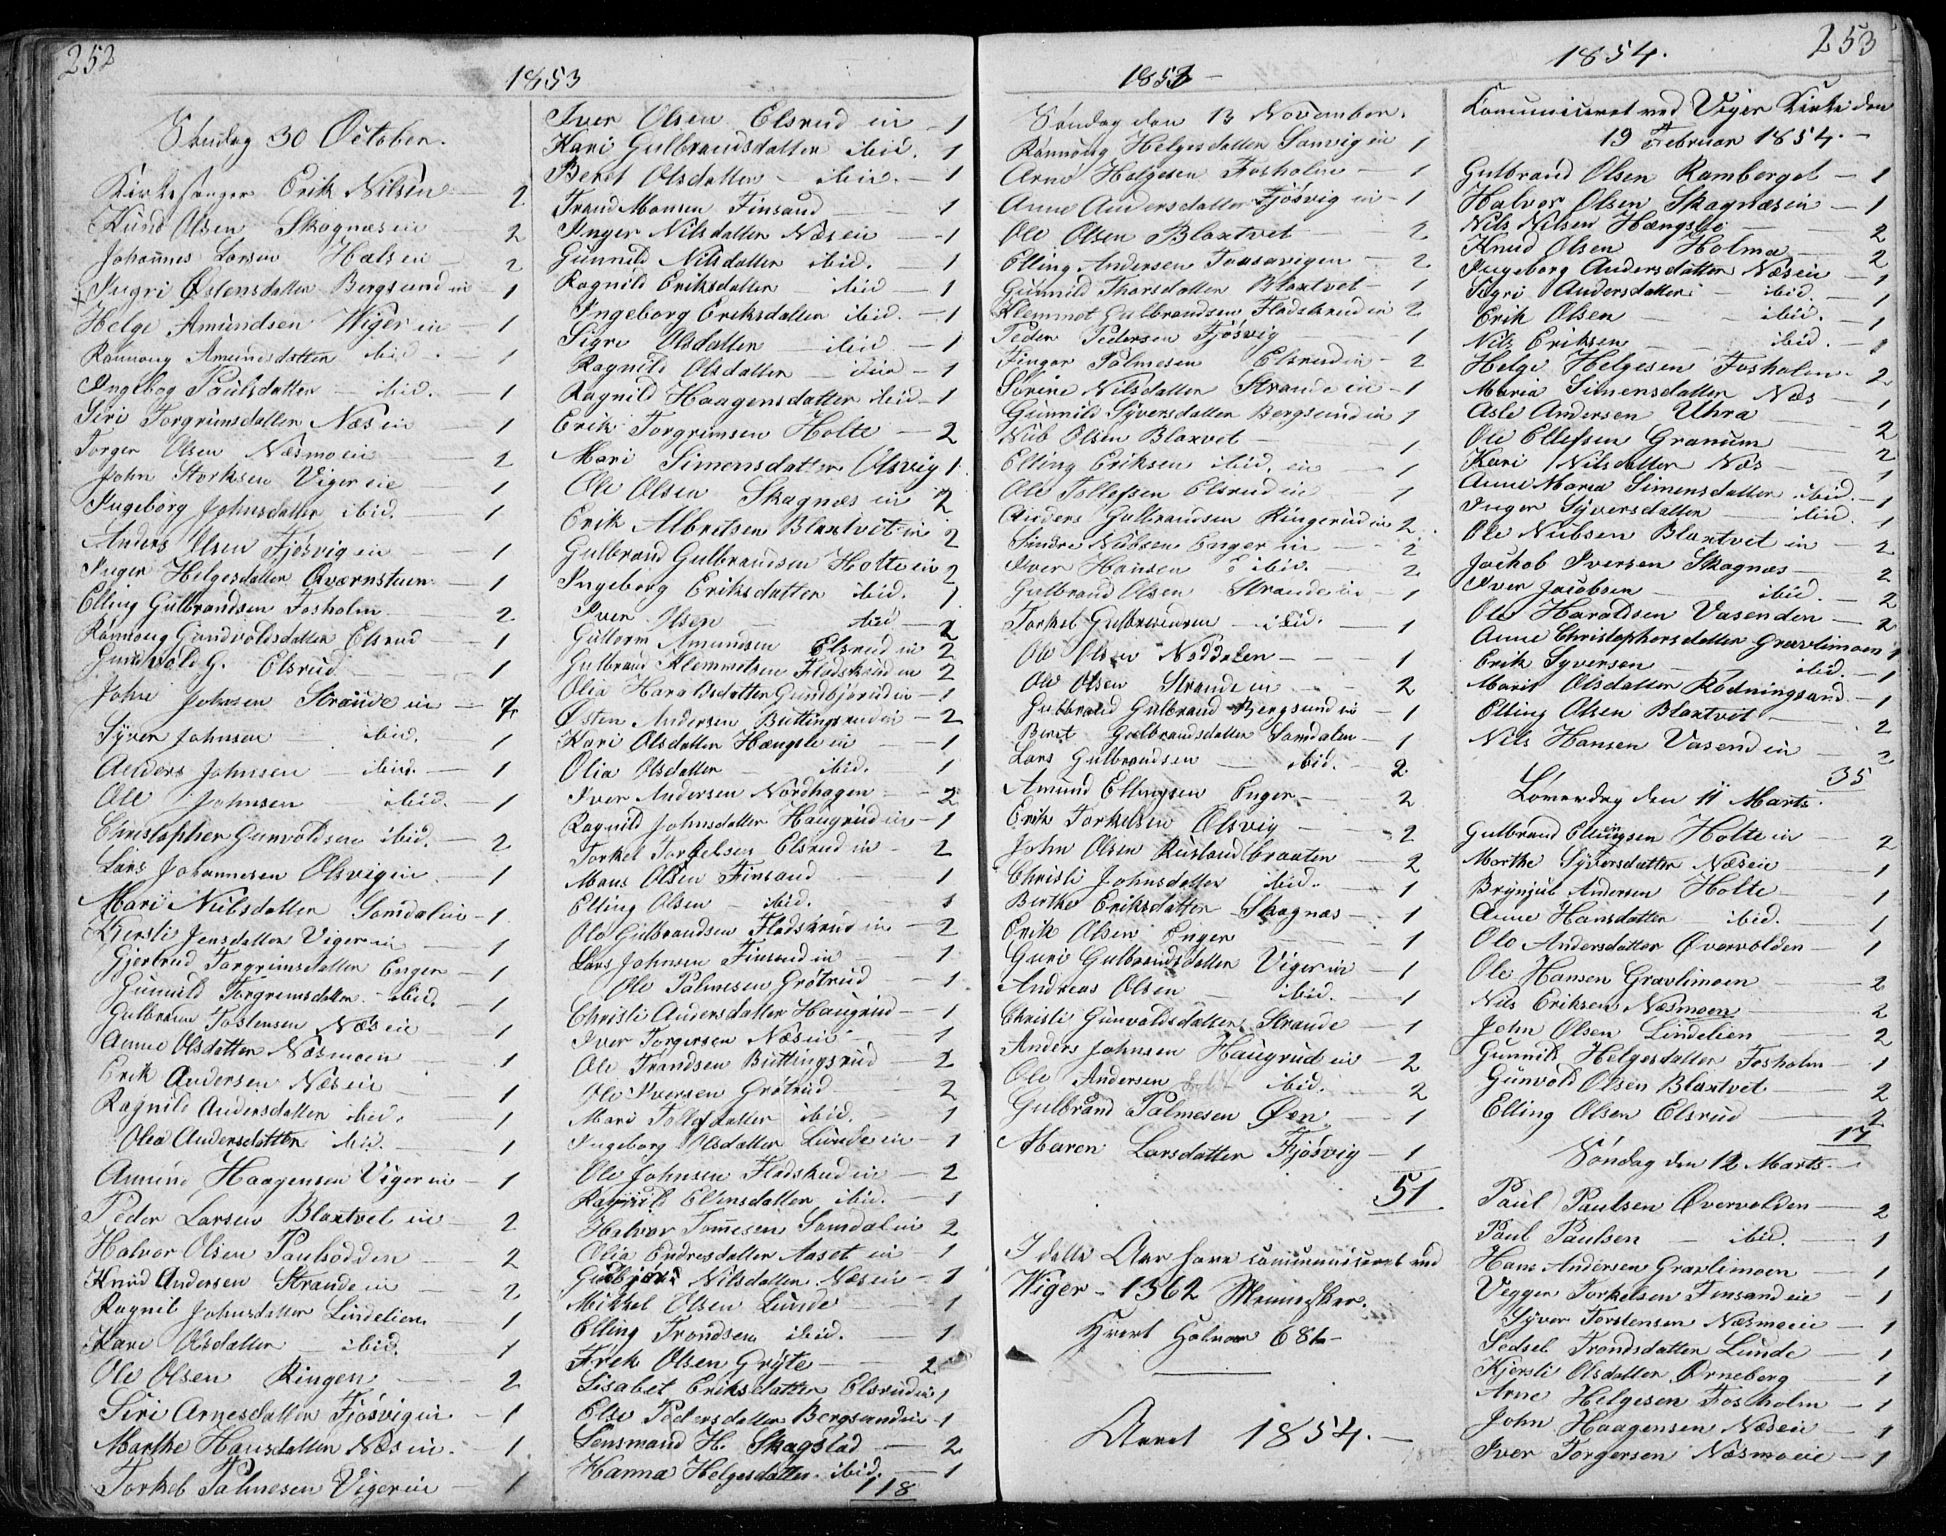 252
1853
Søndag 30 October.
Kirkesanger Erik Nilsen 2
Knud Olsen Skagnæs ein 2
Johannes Larsen Hals ein 2
+ Ingri Østensdatter Bergsund ein 1
Helge Amundsen Wiger ein 1
Rønnoug Amundsdatter ibid. 1
Ingebog Paulsdatter ibid. 1
Siri Torgrimsdatter Næs ein 1
Torger Olsen Næsmoein 2
John Storksen Viger eie 1
Ingeborg Johnsdatter ibid. 1
Anders Olsen Fjøsvig ein 1
Inger Helgesdatter Qværnstuen 1
Elling Gulbrandsen Fosholm 2
Rønnoug Gundvoldsdatter Elsrud 1
Gundvold G. Elsrud 1
John Johnsen Strande ein 7
Syver Johnsen ibid. 1
Anders Johnsen ibid. 1
Ole Johnsen ibid. 1
Christopher Gunvoldsen ibid. 2
Lars Johannesen Olsvigein 1
Mari Nubsdatter Somdalein 1
Kjersti Jensdatter Vigerein 1
Gjertrud Torgrimsdatter Enger 1
Gunnild Torgrimsdatter ibid. 1
Gulbrand Tostensen Næs ein 1
Anne Olsdatter Næsmoen 1
Erik Andersen Næs ein 1
Ragnild Andersdatter ibid. 1
Olea Andersdatter ibid. 1
Amund Haagensen Viger ein 1
Peder Larsen Blaxtvet ein 2
Halvor Olsen Paulsødden 2
Knud Andersen Strande ein 2
Ragnil Johnsdatter Lindelien 1
Kari Olsdatter ibid. 1
Ole Olsen Ringen 2
Siri Arnesdatter Fjøsvig ein 1
Marthe Hansdatter Næs ein. 1
Torkel Palmesen Viger ein 1
Iver Olsen Elsrud ein 1
Kari Gulbrandsdatter ibid. 1
Beret Olsdatter ibid. 1
Trond Monsen Finsand 1
Inger Nilsdatter Næs ein 1
Gunnild Nilsdatter ibid. 1
Ragnild Eriksdatter ibid 1
Ingeborg Eriksdatter ibid. 1
Sigri Olsdatter ibid 1
Ragnild Olsdatter ibid 1
Ragnild Haagensdatter ibid 1
Erik Torgrimsen Holte 2
Mari Simensdatter Olsvig 1
Ole Olsen Skagnæs ein 2
Erik Albretsen Blaxtvit ein 2
Gulbrand Gulbrandsen Holte ein 2
Ingeborg Eriksdatter ibid. 1
Iver Olsen ibid 2
Guttorm Amundsen Elsrud ein 2
Gulbrand Klemmetsen Fladskrud ein 2
Olia Haraldsdatter Gundbjørud ein 1
Østen Andersen Buttingsrud ein 2
Kari Olsdatter Hængsle ein 1
Olia Olsdatter ibid. 1
Iver Andersen Nordhagen 2
Ragnild Johnsdatter Haugrud ein 1
Torkel Torkelsen Elsrud ein 2
Mons Olsen Finsand 1
Elling Olsen ibid. 1
Ole Gulbrandsen Fladskrud ein 2
Lars Johnsen Finsand ein 1
Ole Palmesen Grøtrud 1
Christi Andersdatter Haugrud 1
Iver Torgersen Næs ein 1
Ole Trondsen Buttingsrud 2
Ole Iversen Grøtrud 2
Mari Tollefsdatter ibid. 1
Ingeborg Olsdatter Lunde ein 1
Ole Johnsen Fladskrud ein 2
Ragnild Ellensdatter ibid. 1
Halvor Tomesen Somdal ein 2
Olia Endresdatter Aaset ein 1
Gudbjør Nilsdatter Næs ein 1
Mikkel Olsen Lunde 1
Elling Trondsen ibid. 1
Erik Olsen Gryte 2
Lisabet Eriksdatter Elsrud ein 1
Else Pedersdatter Bergsund ein 1
Lensmand H. Skagstad 2
Hanna Helgesdatter ibid. 1
118
253
1853
Søndag den 13 November.
Rønnoug Helgesdatter Sonvig ein 1
Arne Helgesen Fosholm 1
Anne Andersdatter Fjøsvig ein 1
Ole Olsen Blaxtvet 2
Elling Andersen Traasavigen 2
Gunnild Thorsdatter Blaxtvet 1
Klemmet Gulbrandsen Fladskrud ein 2
Peder Pedersen Fjøsvig 1
Finger Palmesen Elsrud ein 2
Sørine Nilsdatter Strande ein 1
Gunnild Syversdatter Bergsund ein 1
Nub Olsen Blaxvet 1
Elling Eriksen ibid. ein 1
Ole Tollefsen Elsrud ein 1
Anders Gulbrandsen Ringerud ein 2
Sindre Nubsen Enger ein 2
Iver Hansen ibid. 2
Gulbrand Olsen Strande ein 1
Torkel Gulbrandsen ibid. 1
Ole Olsen Noddelen 1
Ole Olsen Strande ein 2
Gulbrand Gulbrand Bergsund ein 1
Beret Gulbrandsdatter Somdalen 1
Lars Gulbrandsen ibid. 2
Amund Ellingsen Enger 2
Erik Torkelsen Olsvig 2
John Olsen Rusland braaten 2
Christi Johnsdatter ibid. 1
Birthe Eriksdatter Skagnæs 1
Erik Olsen Enger 1
Guri Gulbrandsdatter Viger ein 1
Andreas Olsen ibid. 1
Christi Gunvoldsdatter Strande 1
Anders Johnsen Haugrud ein 2
Ole Andersen ibid. 2
Gulbrand Palmesen Øen 1
Maren Larsdatter Fjøsvig 1
51
I dette Aar have communiceret ved
Wiger - 1362 Mennesker.
Hvert Halvaar 681
Aaret 1854.
1854.
Communiceret ved Viger Kirke den
19 Februar 1854.
Gulbrand Olsen Ramberget 1
Halvor Olsen Skagnæs ein 1
Nils Nilsen Hængsle 2
Knud Olsen Holma 2
Ingeborg Andersdatter Næs ein 1
Sigri Andersdatter ibid. 1
Erik Olsen ibid. 1
Nils Eriksen ibid. 1
Helge Helgesen Fosholm 2
Maria Simensdatter Næs 1
Asle Andersen Uhra 2
Ole Ellefsen Granum 2
Kari Nilsdatter Næs 1
Anne Maria Simensdatter ibid. 1
Inger Syversdatter ibid. 1
Ole Nubsen Blaxtvet ein 2
Jachob Iversen Skagnæs 2
Iver Jacobsen ibid. 2
Ole Haraldsen Vasenden 2
Anne Christophersdatter Gravlimoen 1
Erik Syversen ibid. 1
Marit Olsdatter Rødningsand 1
Elling Olsen Blaxtvet 2
Nils Hansen Vasend ein 2
35
Løverdag den 11 Marts.
Gulbrand Ellingsen Holte ein 2
Marthe Syversdatter Næs ein 1
Brynjul Andersen Holte 1
Anne Hansdatter ibid. 1
Ole Andersdatter Øvervolden 1
Ole Hansen Gravlimoen 2
Nils Eriksen Næsmoen 2
John Olsen Lindelien 2
Gunnil Helgesdatter Fosholm 1
Gunvold Olsen Blaxtvet 2
Elling Olsen Elsrud 2
17
Søndag den 12 Marts.
Paul Paulsen Øvervolden 2
Paul Paulsen ibid. 1
Hans Andersen Gravlimoen 1
Vegger Torkelsen Finsand ein 1
Syver Torstensen Næsmoeie 1
Sedsel Trondsdatter Lunde 1
Kjersti Olsdatter Ørneberg 1
Arne Helgesen Fosholm 1
John Haagensen Næs ein 1
Iver Torgersen Næsmoeie 1